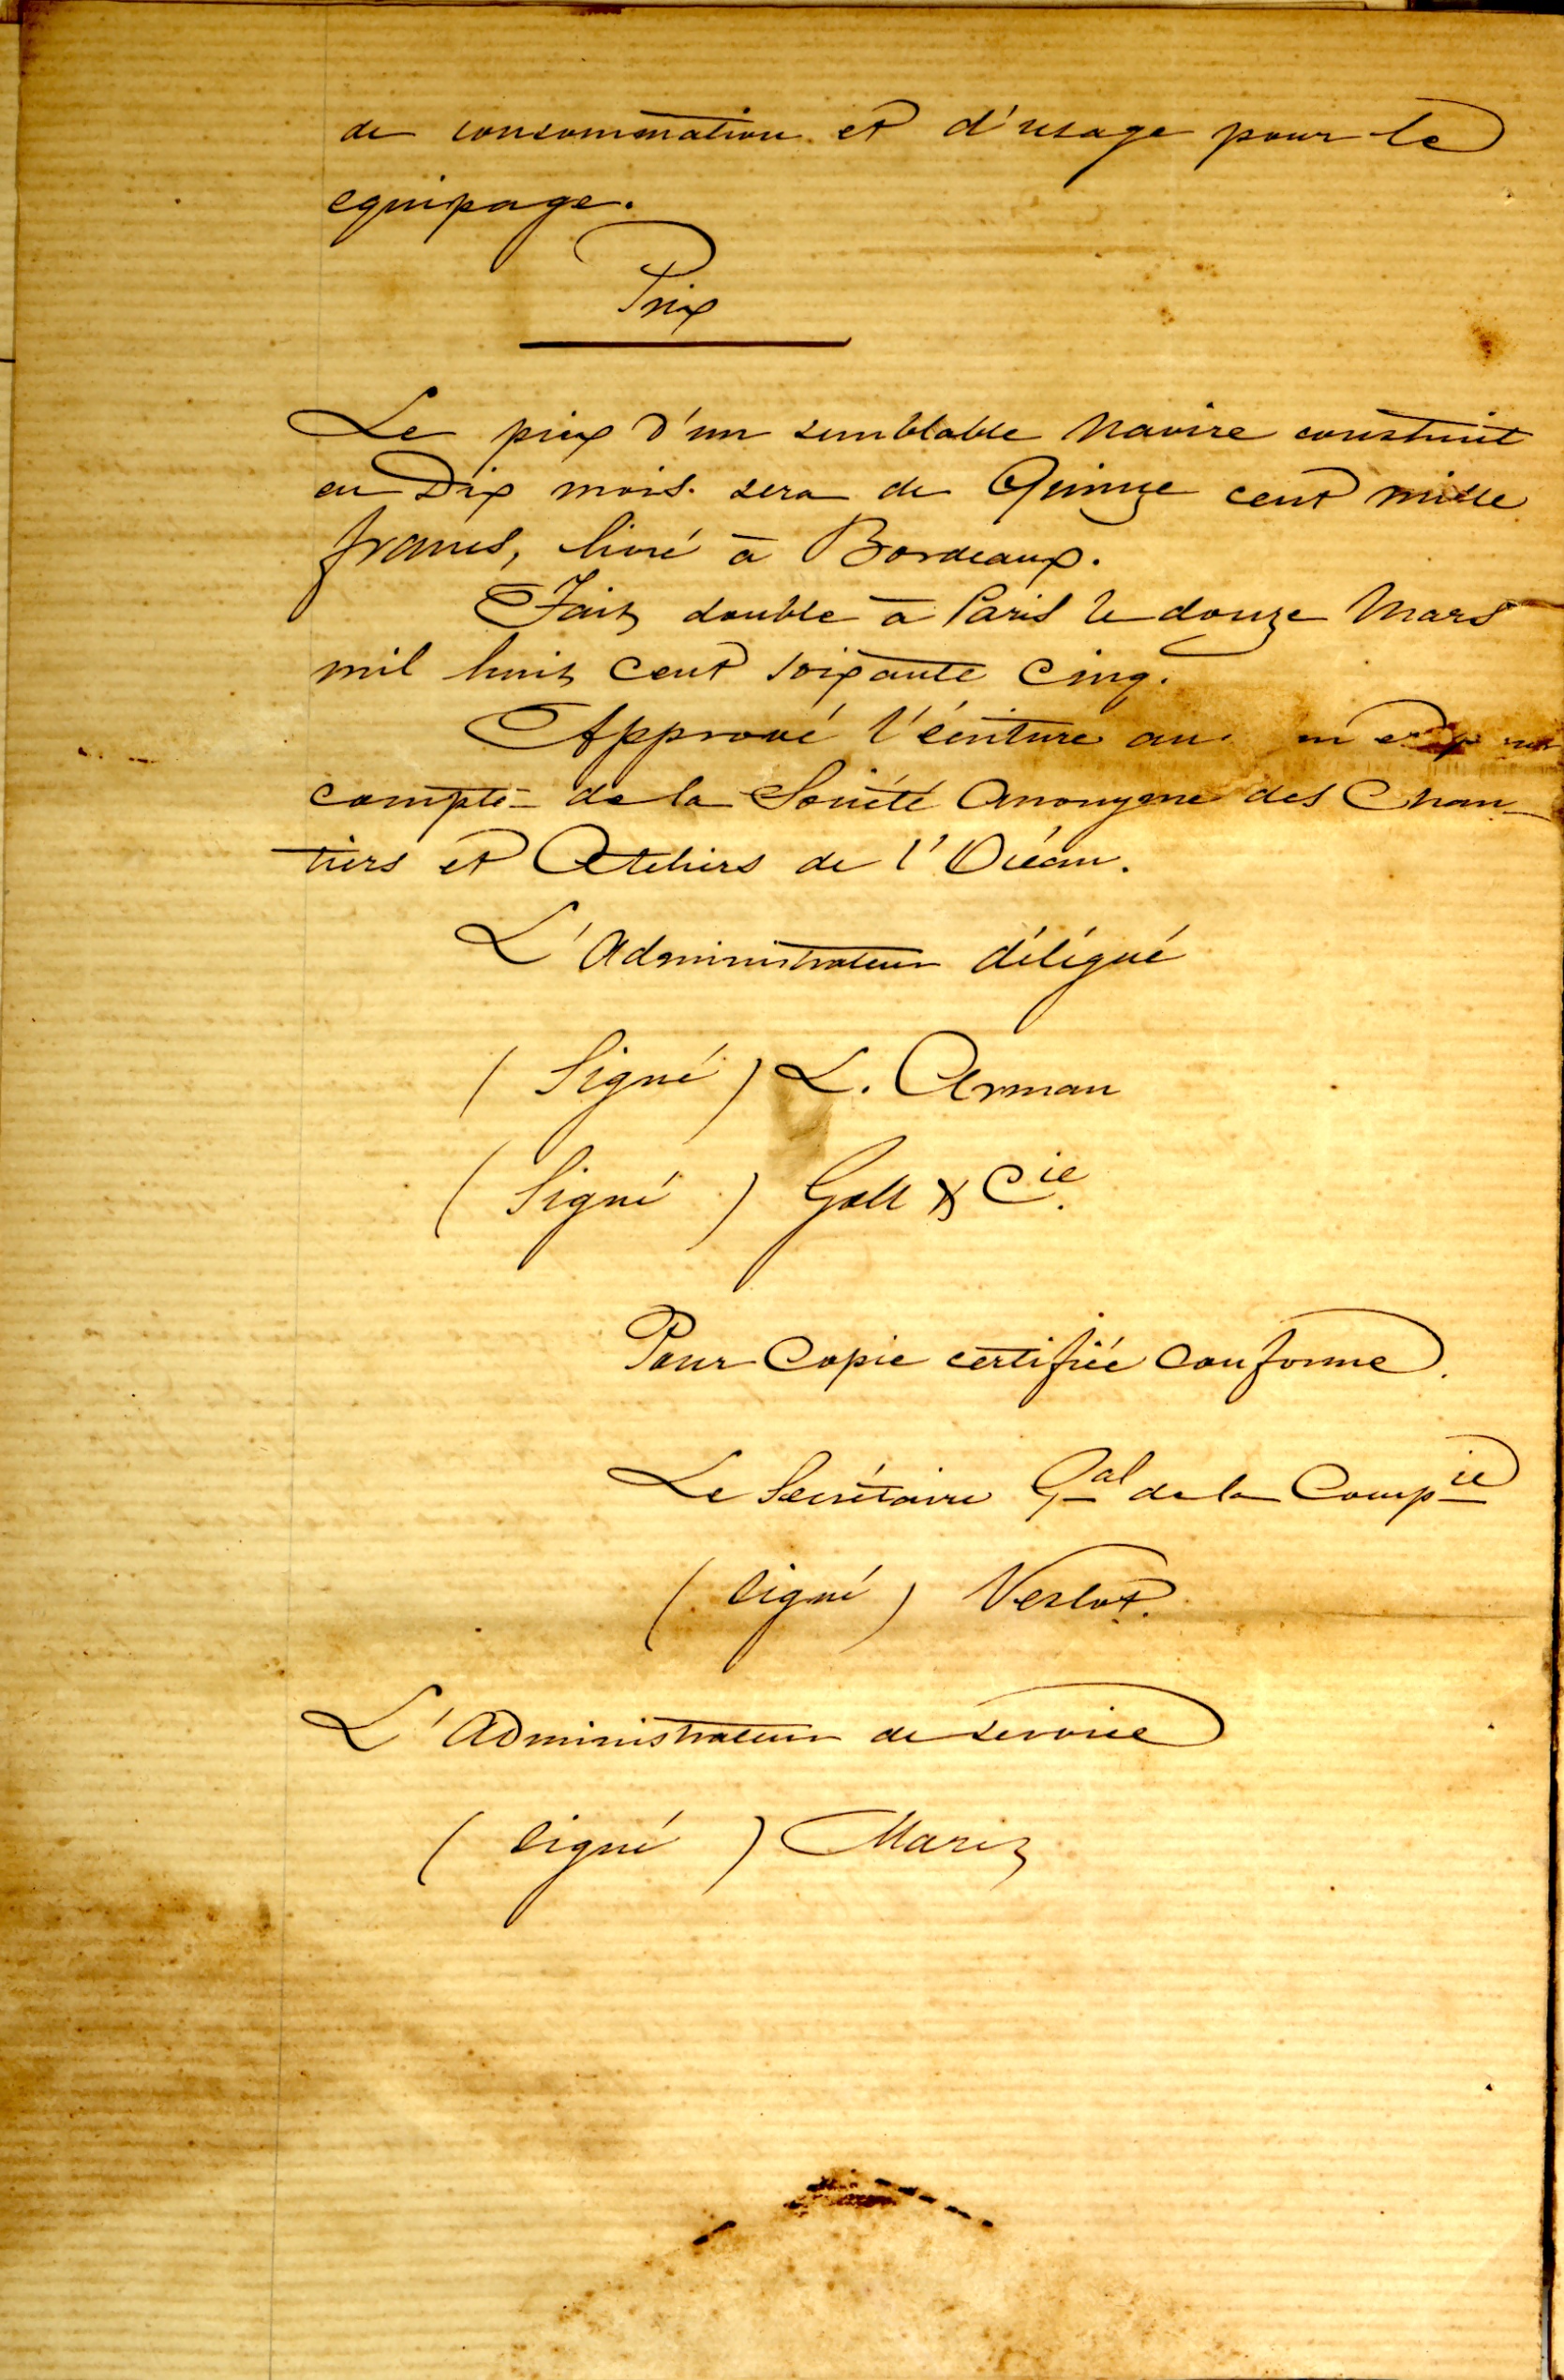 de consommation et d'usage pour le
equipage.
Prix
Le prix d'un semblable Navire construit
en Dix mois sera de Quinze cent mille
francs, livré à Bordeaux.
Fait double à Paris le douze Mars
mil huit cent soixante cinq.
Approuvé l'écriture au
compte de la Société Anonyme des Chan-
tiers et Ateliers de l'Océan.
L'Administrateur délégué
(Signé) L. Arman
(Signé) & Cie.
Pour Copie certifiée conforme.
Le Secrétaire Gal de la Compie
(signé)
L'Administrateur de service
(signé)